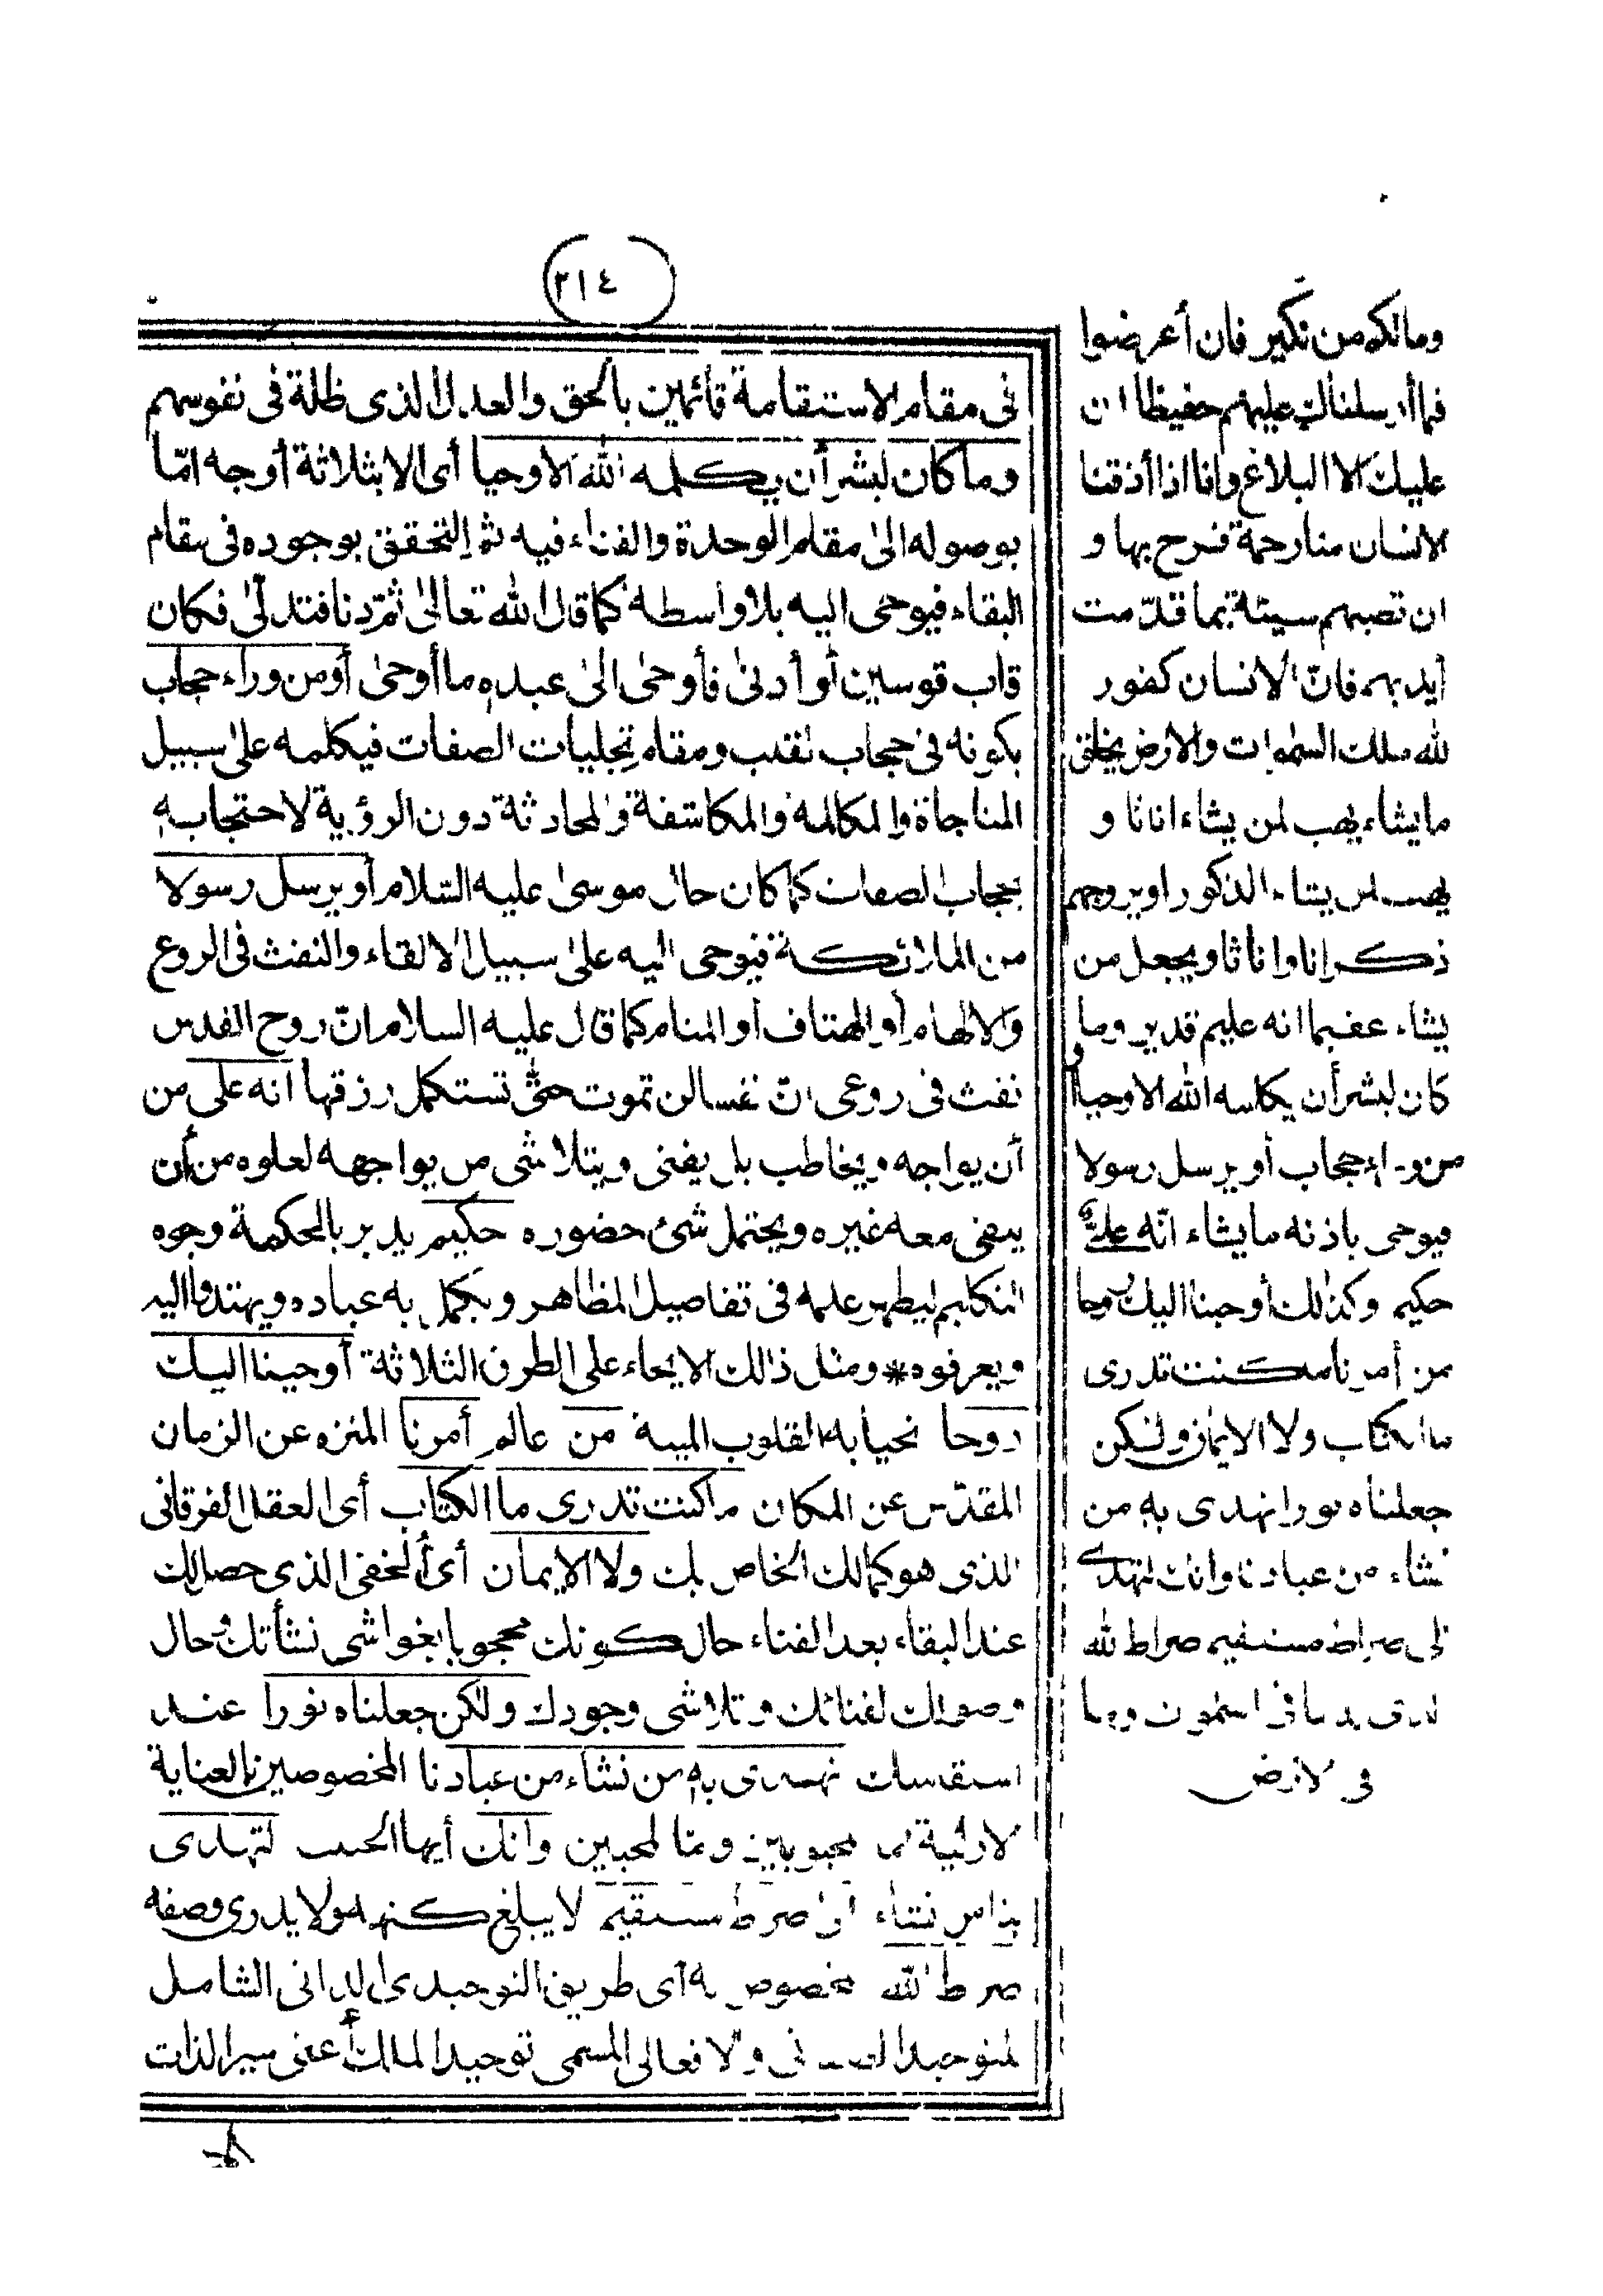 (٢١٤)
ومالكم من نكير فان أعرضوا
فما أرسلناك عليهم حفيظا ان
عليك الا البلاغ وانا اذا أذقنا
الانسان منا رحمة فرح بها و
ان تصبهم سيئة بما قدّمت
أيديهم فانّ الانسان كفور
لله ملك السموات والارض يخلق
ما يشاء يهب لمن يشاء اناثا و
يهب لمن يشاء الذكور او يزوجهم
ذكرانا واناثا ويجعل من
يشاء عقيما انه عليم قدير وما
كان لبشر أن يكلمه الله الا وحيا أو
من وراء حجاب أو يرسل رسولا
فيوحى باذنه ما يشاء انّه علىّ
حكيم وكذلك أوحينا اليك روحا
من أمرنا ما كنت تدرى
ما الكتاب ولا الايمان ولكن
جعلناه نورا نهدى به من
نشاء من عبادنا وانك لتهدى
الى صراط مستقيم صراط الله
الذى له ما فى السموات وما
فى الارض
فى مقام الاستقامة قائمين بالحق والعدل الذى ظلة فى نفوسهم
وما كان لبشر أن يكلمه الله الا وحيا أى الا بثلاثة أوجه امّا
بوصوله الى مقام الوحدة والفناء فيه ثم التحقق بوجوده فى مقام
البقاء فيوحى اليه بلا واسطه كما قال الله تعالى ثم دنا فتدلّى فكان
قاب قوسين أو أدنى فأوحى الى عبده ما أوحى أو من وراء حجاب
بكونه فى حجاب القلب ومقام تجليات الصفات فيكلمه على سبيل
المناجاة والمكالمة والمكاشفة والمحادثة دون الرؤية لاحتجابه
بحجاب الصفات كما كان حال موسى عليه السلام أو يرسل رسولا
من الملائكة فيوحى اليه على سبيل الالقاء والنفث فى الروع
والالهام أو الهتاف أو المنام كما قال عليه السلام انّ روح القدس
نفث فى روعى انّ نفسا لن تموت حتى تستكمل رزقها انه على من
أن يواجه ويخاطب بل يفنى ويتلاشى من يواجهه لعلوه من أن
يبقى معه غيره ويحتمل شئ حضوره حكيم يدبر بالحكمة وجوه
التكليم ليظهر علمه فى تفاصيل المظاهر ويكمل به عباده ويهتدوا اليه
ويعرفوه * ومثل ذلك الايحاء على الطرق الثلاثة أوحينا اليك
روحا تحيا به القلوب الميتة من عالم أمرنا المنزه عن الزمان
المقدّس عن المكان ما كنت تدرى ما الكتاب أى العقل الفرقانى
الذى هو كمالك الخاص بك ولا الايمان أى الخفى الذى حصل لك
عند البقاء بعد الفناء حال كونك محجوبا بغواشى نشأتك وحال
وصولك لفنائك وتلاشى وجودك ولكن جعلناه نورا عند
استقامتك نهدى به من نشاء من عبادنا المخصوصين بالعناية
الازلية اما المحبوبين واما المحبين وانك أيها الحبيب لتهدى
بنا من نشاء الى صراط مستقيم لا يبلغ كنهه ولا يدرى وصفه
صراط الله المخصوص به أى طريق التوحيد الذاتى الشامل
للتوحيد الصفاتى والافعالى المسمى توحيد الملك أعنى سير الذات